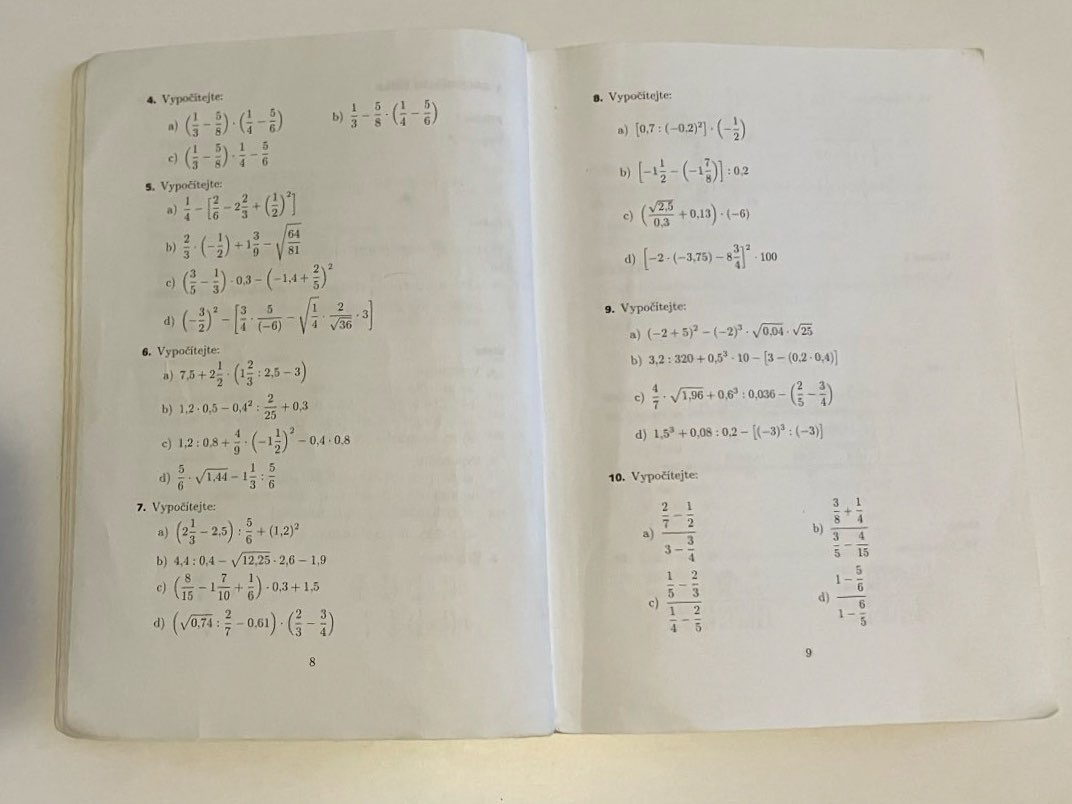 4. Vypočítejte:
a) (1/3 − 5/8) · (1/4 − 5/6)
b) 1/3 − 5/8 · (1/4 − 5/6)
c) (1/3 − 5/8) · 1/4 − 5/6
5. Vypočítejte:
a) 1/4 − [2/6 − 2 2/3 + (1/2)²]
b) 2/3 · (−1/2) + 1 3/9 − √(64/81)
c) (3/5 − 1/3) · 0,3 − (−1,4 + 2/5)²
d) (−3/2)² − [3/4 · 5/(−6) − √(1/4) · 2/√36 · 3]
6. Vypočítejte:
a) 7,5 + 2 1/2 · (1 2/3 : 2,5 − 3)
b) 1,2 · 0,5 − 0,4² : 2/25 + 0,3
c) 1,2 : 0,8 + 4/9 · (−1 1/2)² − 0,4 · 0,8
d) 5/6 · √1,44 − 1 1/3 : 5/6
7. Vypočítejte:
a) (2 1/3 − 2,5) : 5/6 + (1,2)²
b) 4,4 : 0,4 − √12,25 · 2,6 − 1,9
c) (8/15 − 1 7/10 + 1/6) · 0,3 + 1,5
d) (√0,74 : 2/7 − 0,61) · (2/3 − 3/4)
8
8. Vypočítejte:
a) [0,7 : (−0,2)²] · (−1/2)
b) [−1 1/2 − (−1 7/8)] : 0,2
c) (√2,5/0,3 + 0,13) · (−6)
d) [−2 · (−3,75) − 8 3/4]² · 100
9. Vypočítejte:
a) (−2 + 5)² − (−2)³ · √0,04 · √25
b) 3,2 : 320 + 0,5³ · 10 − [3 − (0,2 · 0,4)]
c) 4/7 · √1,96 + 0,6³ : 0,036 − (2/5 − 3/4)
d) 1,5³ + 0,08 : 0,2 − [(−3)³ : (−3)]
10. Vypočítejte:
a) (2/7 − 1/2)/(3 − 3/4)
b) (3/8 + 1/4)/(3/5 − 4/15)
c) (1/5 − 2/3)/(1/4 − 2/5)
d) (1 − 5/6)/(1 − 6/5)
9